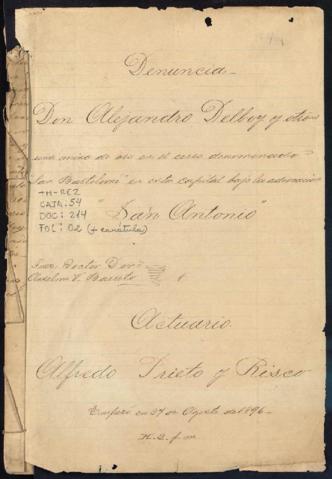 Denuncia
Don Alejandro Delboy y otros
una mina de oro en el cerro denominado
"San Bartolomé" en esta capital bajo la advocación
TH-RE2
CAJA: 54
DOC: 214
FOL: 02 (+ carátula)
"San Antonio"
Juez Doctor Don
Anselmo V. Barreto
Actuario
Alfredo Prieto y Risco
Empezó en 27 de Agosto de 1896